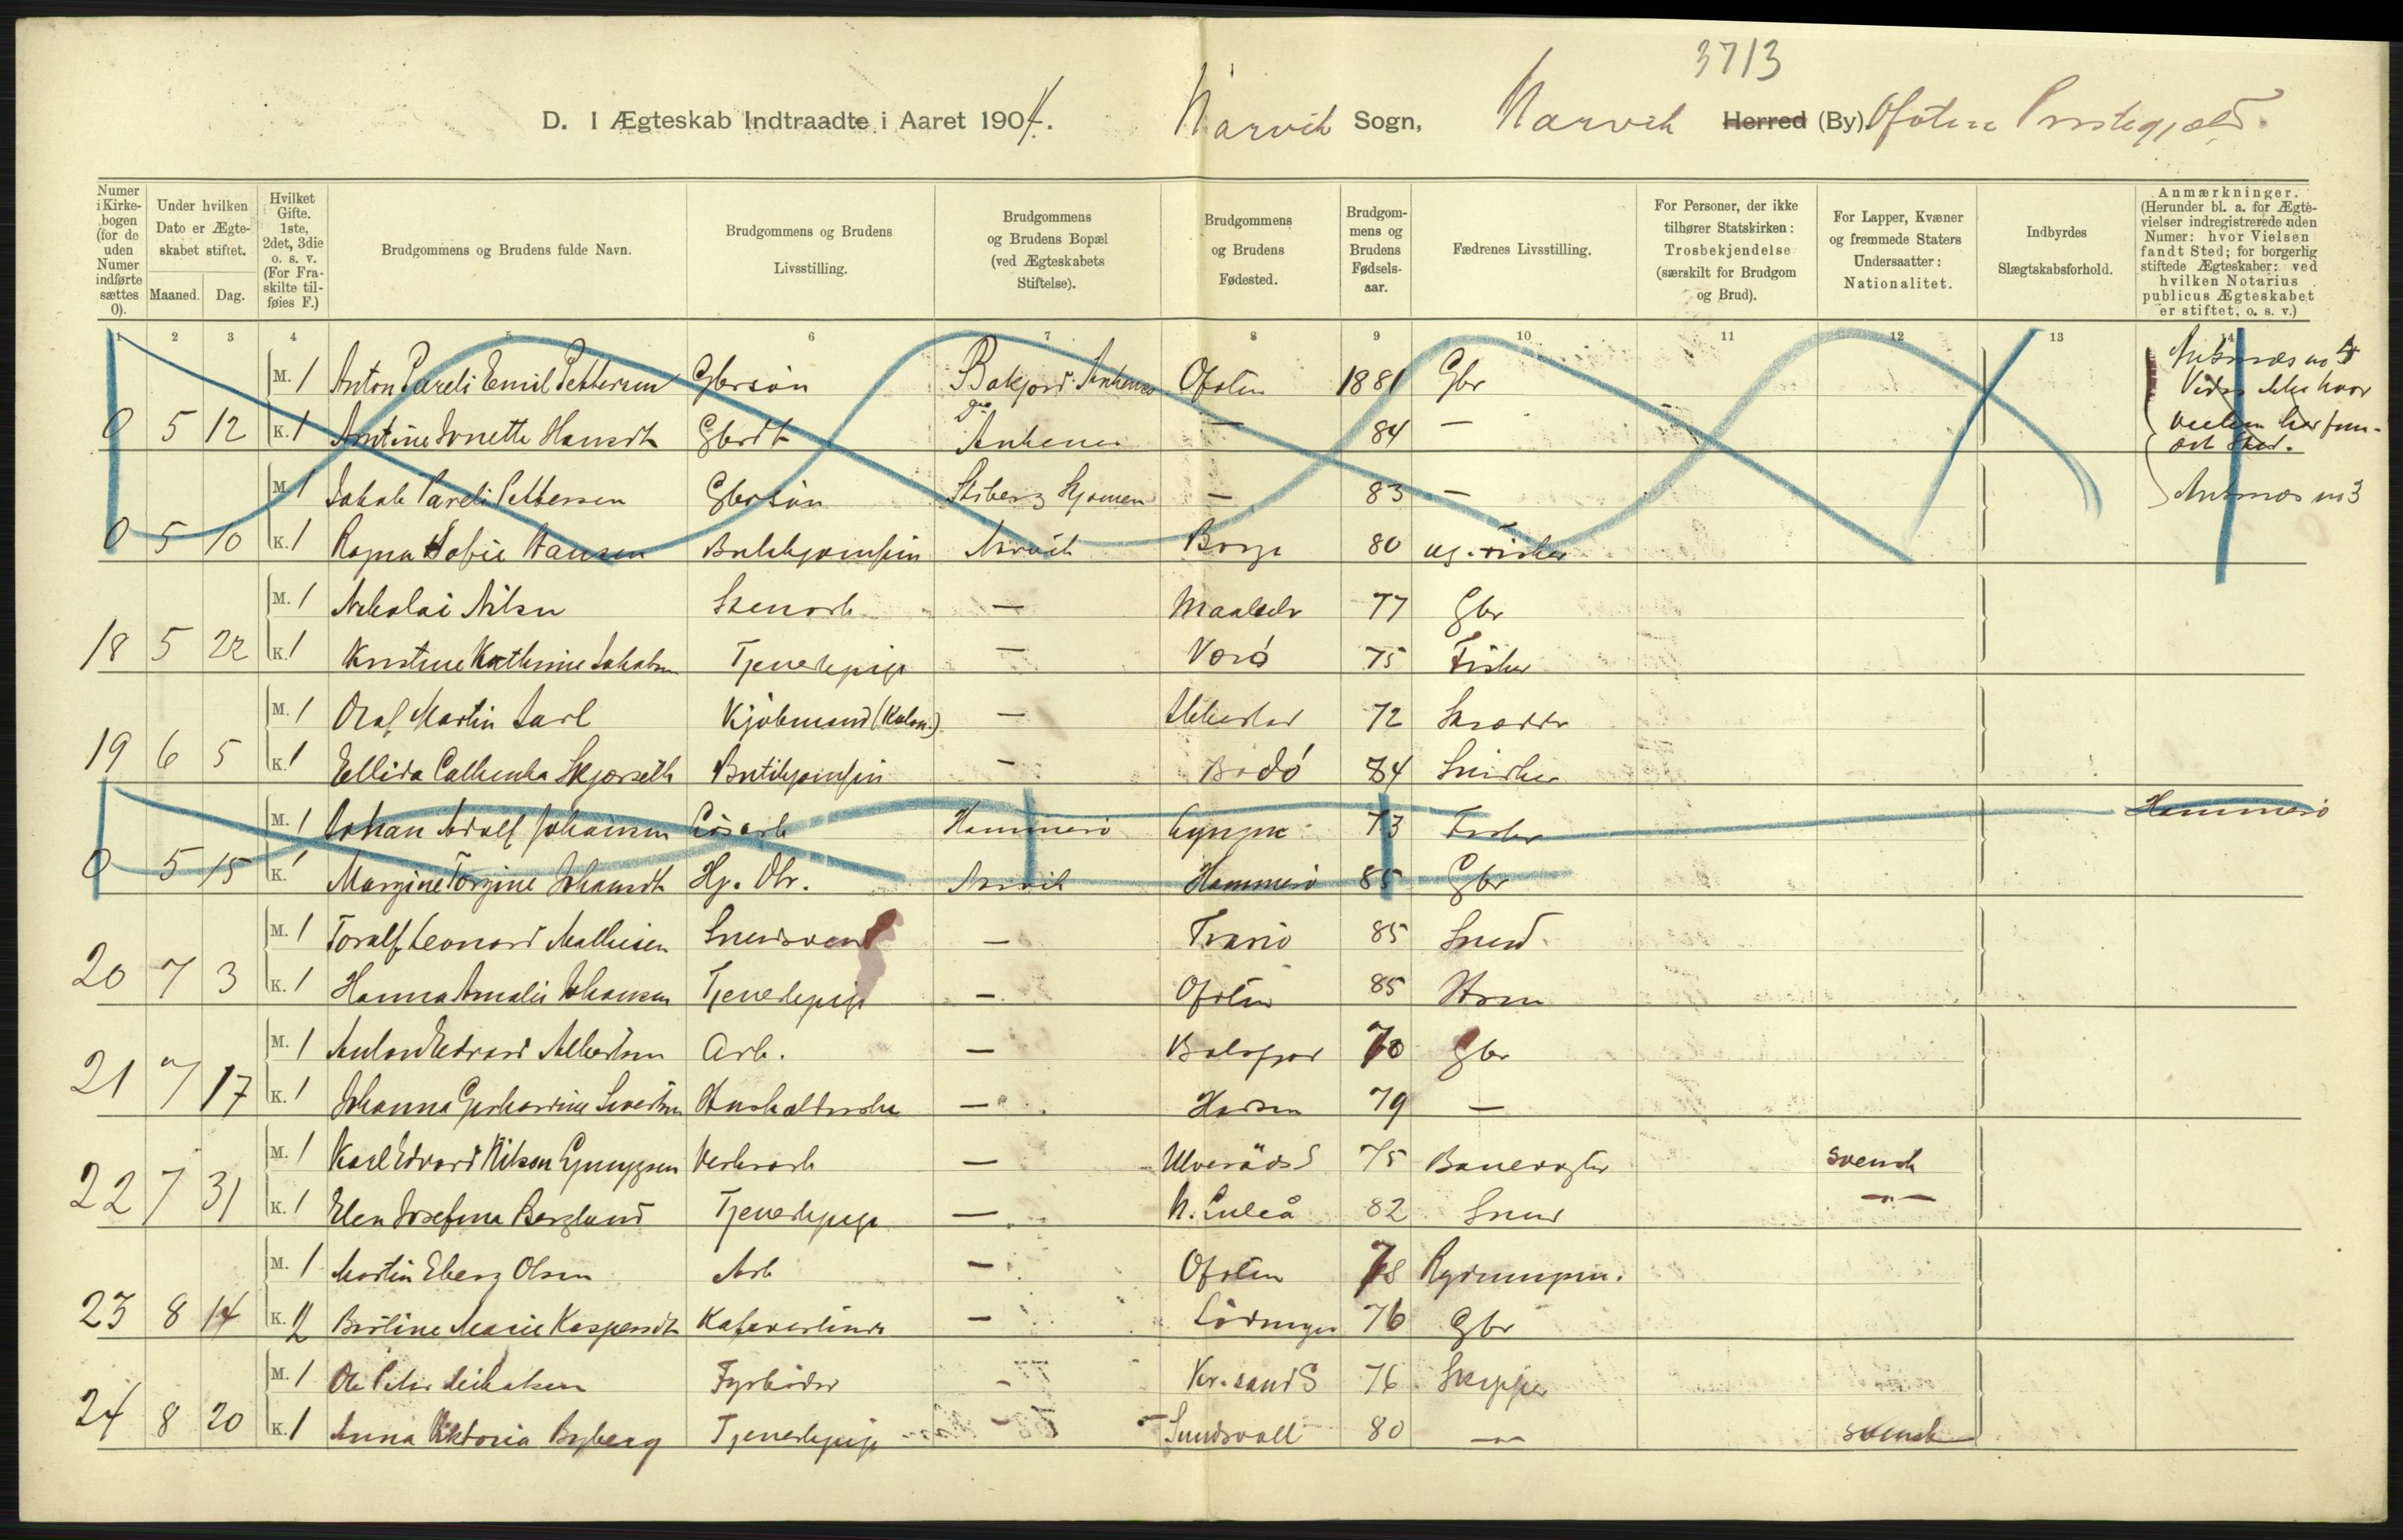 3713
D. I Ægteskab Indtraadte i Aaret 1904. Narvik Sogn, Narvik Herred (By) Ofoten Præstegjæld.
Numer i Kirkebogen (for de uden Numer indførte sættes 0).
Under hvilken Dato er Ægteskabet stiftet.
Maaned. Dag.
Hvilket Gifte. 1ste, 2det, 3die o. s. v. (For Fraskilte tilføies F.)
Brudgommens og Brudens fulde Navn.
Brudgommens og Brudens Livsstilling.
Brudgommens og Brudens Bopæl (ved Ægteskabets Stiftelse).
Brudgommens og Brudens Fødested.
Brudgommens og Brudens Fødselsaar.
Fædrenes Livsstilling.
For Personer, der ikke tilhører Statskirken: Trosbekjendelse (særskilt for Brudgom og Brud).
For Lapper, Kvæner og fremmede Staters Undersaatter: Nationalitet.
Indbyrdes Slægtskabsforhold.
Anmærkninger. (Herunder bl. a. for Ægtevielser indregistrerede uden Numer: hvor Vielsen fandt Sted; for borgerlig stiftede Ægteskaber: ved hvilken Notarius publicus Ægteskabet er stiftet, o. s. v.)
1 2 3 4 5 6 7 8 9 10 11 12 13 14
M. 1 Anton Pareli Emil Pettersen Gbrsøn Ofoten 1881 Gbr
0 5 12 K. 1 Hansdt Gbrdt Ankenes — 84 —
M. 1 Jakob Pareli Pettersen Gbrsøn — 83 — Ankenes no 3
0 5 10 K. 1 Ragna Sofie Hansen Narvik Borge 80 Fisker
M. 1 Nikolai Nilsen Stenarb — Maalselv 77 Gbr
18 5 22 K. 1 Kristine Kathrine Jakobsen Tjenestepige — Værø 75 Fisker
M. 1 Olaf Martin Jarl Kjøbmand (Kolon.) — Ibbestad 72 Skrædder
19 6 5 K. 1 Ellida Cathinka Skjærseth Butikjomfru — Bodø 84 Snedker
M. 1 Johan Adolf Johansen Løsarb Hammerø Lyngen 73 Fisker Hammerø
0 5 15 K. 1 Margine Torgine Johansdt Hj. Dtr. Narvik Hammerø 85 Gbr
M. 1 Toralf Leonard Mathisen Smedsvend — Tranø 85 Smed
20 7 3 K. 1 Hanna Amalie Johansen Tjenestepige — Ofoten 85
M. 1 Anton Edvard Albertsen Arb. — Balsfjord 70 Gbr
21 7 17 K. 1 Johanna Gerhardine Sivertsen Husholderske — 79 —
M. 1 Karl Edvard Nilson Verksarb — 75 Banevogter svensk
22 7 31 K. 1 Elen Josefina Berglund Tjenestepige — N. Luleå 82 Smed —"—
M. 1 Martin Eberg Olsen Arb — Ofoten 78
23 8 14 K. 2 Berline Marie Kaspersdt Kafeværtinde — Lødingen 76 Gbr
M. 1 Ole Peter Mikalsen Fyrbøder — Kr.sand S 76 Skipper
24 8 20 K. 1 Anna Viktoria Byberg Tjenestepige — Sundsvall 80 —"— svensk